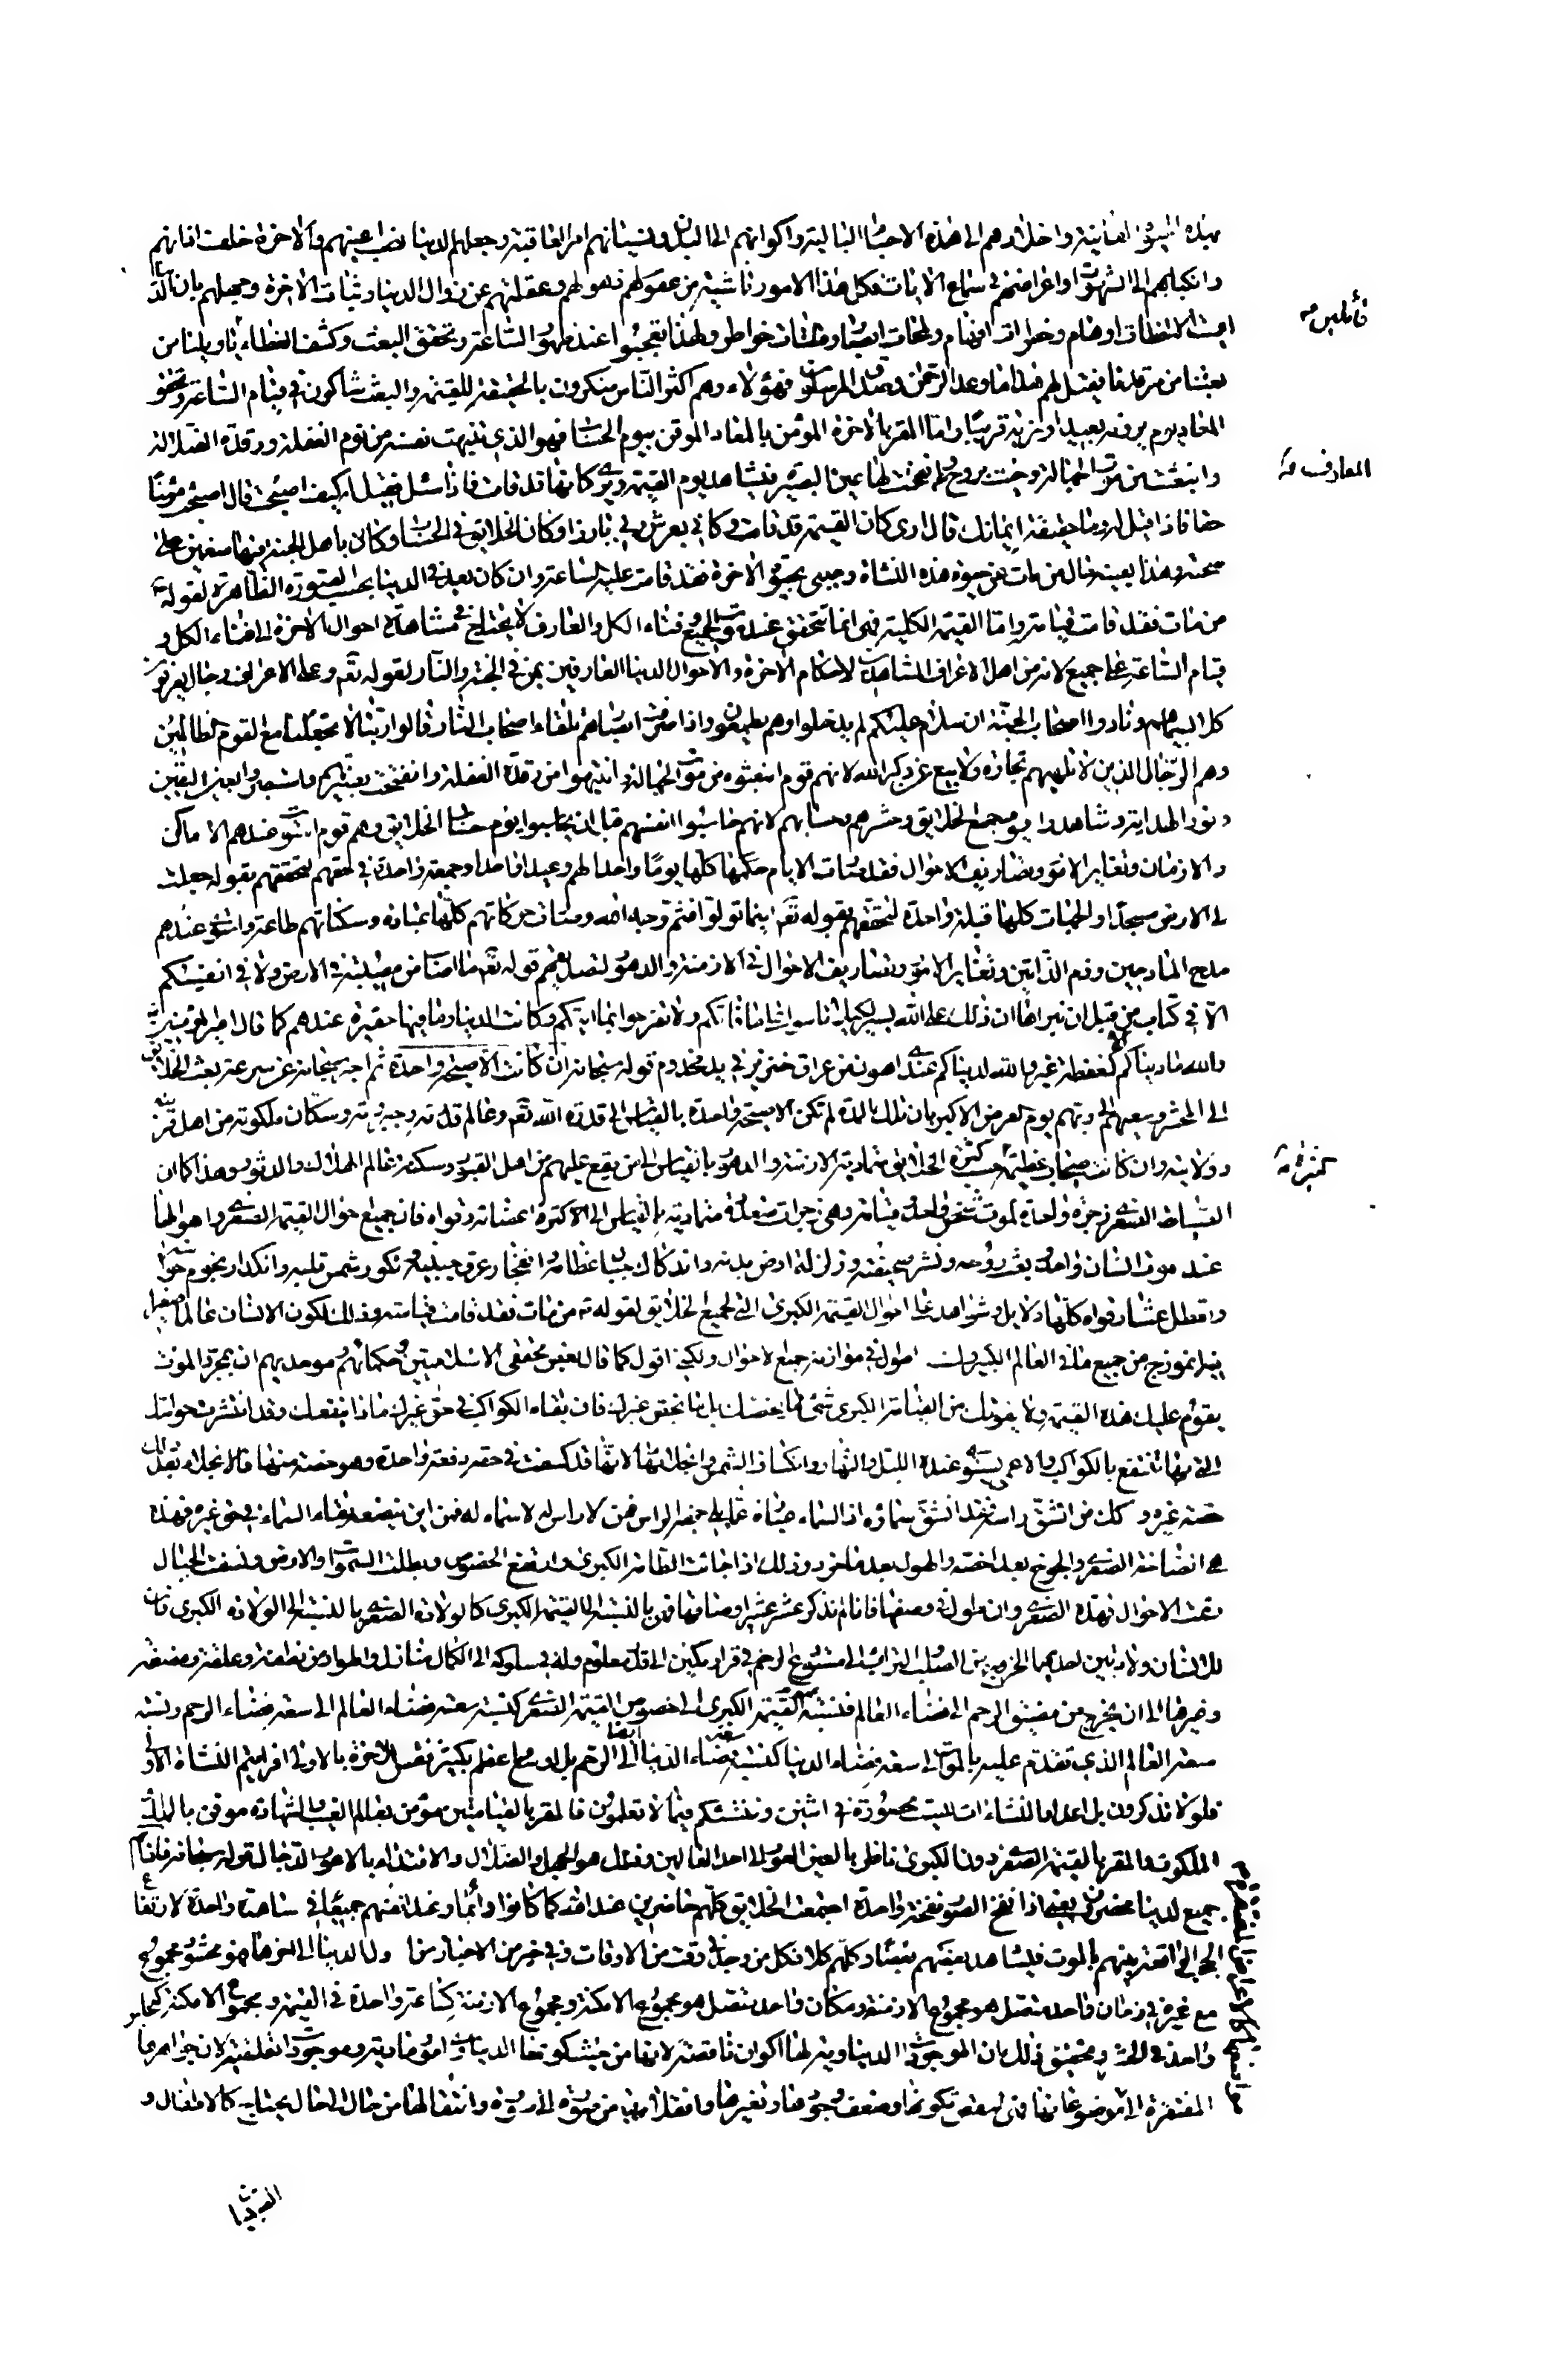 بهذه البيوت الفانية واخلادهم الى هذه الاجساد البالية واكوانهم الى الليل ونسيانهم امر العاقبة وجعلهم الدنيا نصب اعينهم والاخرة خلف اذانهم
وانكبابهم الى الشهوات واعراضهم فى سماع الايات فكل هذا الامور ناشية من عقولهم ذهولهم وغفلتهم عن زوال الدنيا وثبات الاخرة وجهلهم بان
قائلين
اوهام وخطرات افهام ولمحات ابصار وفلتات خواطر ولهذا تعجبوا عند ظهور الساعة وتحقق البعث وكشف الغطاء يا ويلنا من
بعثنا من مرقدنا فيقال لهم هذا ما وعد الرحمن وصدق المرسلون فهؤلاء وهم اكثر الناس منكرون بالحقيقة للقيمة والبعث شاكون فى قيام الساعة
المعاد يوم يرونه بعيدا ونراه قريبا واما المقر بالاخرة المؤمن بالمعاد الموقن بيوم الحساب فهو الذى تنبهت نفسه من نوم الغفلة ورقدة الضلالة
وانبعثت من موت الجهالة وحيت بروح المعارف وانفتحت لها عين البصيرة فيشاهد يوم القيمة ويرى كانها قد قامت فاذا سئل فقيل له كيف اصبحت قال اصبحت مؤمنا
المعارف
حقا فاذا قيل له وما حقيقة ايمانك قال ارى كان القيمة قد قامت وكانى بعرش ربى بارزا وكان الخلايق فى الحساب وكانى باهل الجنة فيها منعمين
صحته وهذا بعينه حال من مات عن حيوة هذه النشاة وحيى بحيوة الاخرة فقد قامت عليه الساعة وان كان بعد فى الدنيا بحسب الصورة الظاهرة لقوله
من مات فقد قامت قيامته واما القيمة الكلية فهى انما تتحقق عند موت الجميع وفناء الكل والعارف لا يحتاج فى مشاهدة احوال الاخرة الى فناء الكل و
قيام الساعة على الجميع لانه من اهل الاعراف المشاهدين لاحكام الاخرة والاحوال الدنيا العارفين بمن فى الجنة والنار لقوله تعم وعلى الاعراف رجال يعرفون
كلا بسيماهم ونادوا اصحاب الجنة ان سلام عليكم لم يدخلوا وهم يطمعون واذا صرفت ابصارهم تلقاء اصحاب النار قالوا ربنا لا تجعلنا مع القوم الظالمين
وهم الرجال الذين لا تلهيهم تجارة ولا بيع عن ذكر الله لانهم قوم انبعثوا من موت الجهالة وانتبهوا من رقدة الغفلة وانفتحت بصيرتهم بعين اليقين
ونور الهداية وشاهدوا يوم مجمع الخلايق وحشرهم وحسابهم لانهم حاسبوا انفسهم قبل ان يحاسبوا يوم حساب الخلايق وهم قوم استوت عندهم الاماكن
والازمان وتغاير الامور وتصاريف الاحوال فقد صارت الايام كلها يوما واحدا لهم وعيدا واحدا وجمعة واحدة فى حقهم لتحققهم بقوله جعلت
لى الارض مسجدا والجهات كلها قبلة واحدة لتحققهم بقوله تعم اينما تولوا فثم وجه الله وصارت حركاتهم كلها عبادة وسكناتهم طاعة واستوى عندهم
مدح المادحين وذم الذامين وتغاير الامور وتصاريف الاحوال فى الازمنة والدهور لتصديقهم قوله تعم ما اصاب من مصيبة فى الارض ولا فى انفسكم
الا فى كتاب من قبل ان نبراها ان ذلك على الله يسير لكيلا تاسوا على ما فاتكم ولا تفرحوا بما اتيكم وكانت الدنيا وما فيها حقيرة عندهم كما قال امير المؤمنين
والله لدنياكم عندى اهون من عراق خنزير فى يد مجذوم قوله سبحانه ان كانت الا صيحة واحدة ثم اخبر سبحانه عن سرعة بعث الخلايق
الى المحشر وسعيهم الى ربهم يوم العرض الاكبر بان تلك المدة لم تكن الا صيحة واحدة بالقياس الى قدرة الله تعم وعالم قدرته وجبروته وسكان ملكوته من اهل قربه
وولايته وان كانت صيحات عظيمة بحسب كثرة الخلايق متمادية الازمنة والدهور بالقياس الى من يقع عليهم من اهل القبور وسكنة عالم الهلاك والدثور وهذا كما ان
كثيرة
القيامة الصغرى زجرة واحدة لموت شخص واحد وقيامته وهى زجرات متعددة متمادية بالقياس الى الاكثرة اعضائه وقواه فان جميع احوال القيمة الصغرى واهوالها
عند موت انسان واحد وبعث روحه ونشر صحيفته وزلزلة ارض بدنه واندكاك جبال عظامه وانفجار عرق جبينه وتكور شمس قلبه وانكدار نجوم حواسه
وتعطل عشار قواه كلها دلايل وشواهد على احوال القيمة الكبرى التى لجميع الخلايق لقوله من مات فقد قامت قيامته وقد الكون الانسان عالما صغيرا
فيه انموذج من جميع ما فى العالم الكبير اطول فى موازنة جميع الاحوال ولكنى اقول كما قال بعض محققى الاسلاميين وحكمائهم وموحديهم ان بمجرد الموت
يقوم عليك هذه القيمة ولا يفوتك من القيامة الكبرى شئ مما يخصك بل ما يخص غيرك فان بقاء الكواكب فى حق غيرك ماذا ينفعك وقد انتثرت حواسك
التى بها تنتفع بالكواكب والاعمى يستوى عنده الليل والنهار وانكساف الشمس وانجلائها لانها قد كسفت فى حقه دفعة واحدة وهو حصته منها فالانجلاء بعد ذلك
حصة غيره وكك من انشق راسه فقد انشق سماؤه اذ السماء عبارة عما يلى جهة الراس فمن لا راس له لا سماء له فمن اين ينفعه بقاء السماء فى حق غيره فهذه
هى القيامة الصغرى والخوف بعد اخفه والهول بعد مؤخر وذلك اذا جاءت الطامة الكبرى وارتفع الخصوص وبطلت السموات والارض ونسفت الجبال
وتمت الاحوال فهذه الصغرى وان طول فى وصفها فانا لم نذكر عشر عشير اوصافها وهى بالنسبة الى القيمة الكبرى كالولادة الصغرى بالنسبة الى الولادة الكبرى فان
للانسان ولادتين احديهما الخروج من الصلب والترائب الى مستودع الرحم فى قرار مكين الى قدر معلوم وله فى سلوكه الى الكمال منازل واطوار من نطفة وعلقة ومضغة
وغيرها الى ان يخرج من مضيق الرحم الى فضاء العالم فنسبة القيمة الكبرى الى خصوص القيمة الصغرى كنسبة سعة فضاء العالم الى سعة فضاء الرحم ونسبة
سعة العالم الذى تقدم عليه بالموت الى سعة فضاء الدنيا كنسبة سعة فضاء الدنيا ايضا الى الرحم بل اوسع واعظم بكثير فقس الاخرة بالاولى افرايتم النشاة الاولى
فلولا تذكرون بل اعداد النشاءات ليست محصورة فى اثنين وننشئكم فيما لا تعلمون فالمقر بالقيامتين مؤمن بعالم الغيب والشهادة موقن بالملك
والملكوت والمقر بالقيمة الصغرى دون الكبرى ناظر بالعين العوراء الى احد العالمين وذلك هو الجهل والضلال والاقتداء بالاعور الدجال قوله سبحانه فاذا هم
جميع لدينا محضرون يعنى اذا نفخ الصور نفخة واحدة اجتمعت الخلايق كلهم حاضرين عند الله كما كانوا دائما وعند انفسهم جميعا فى ساعة واحدة لارتفاع
الحجب الواقعة بينهم بالموت فيشاهد بعضهم بعضا وكلهم كلا فكل من وجد فى وقت من الاوقات وفى خبر من الاخبار من اول الدنيا الى اخرها فهو محشور مجموع
مع غيره فى زمان واحد متصل هو مجموع الازمنة ومكان واحد متصل هو مجموع الامكنة ومجموع الازمنة كساعة واحدة فى القيمة ومجموع الامكنة كمكان
واحد فى الحشر وتحقيق ذلك ان الموجودات فى الدنيا ومنزلها اكوان ناقصة لانها من حيث كونها الدنياوى امور مادية وموجودات تعلقية لان جواهرها
المفتقرة الى موضوعاتها فهى لنقص تكونها وضعف وجودها وتغيرها وانتقالها من صورة الى صورة وانتقالها من حال الى حال يحتاج كالاطفال و